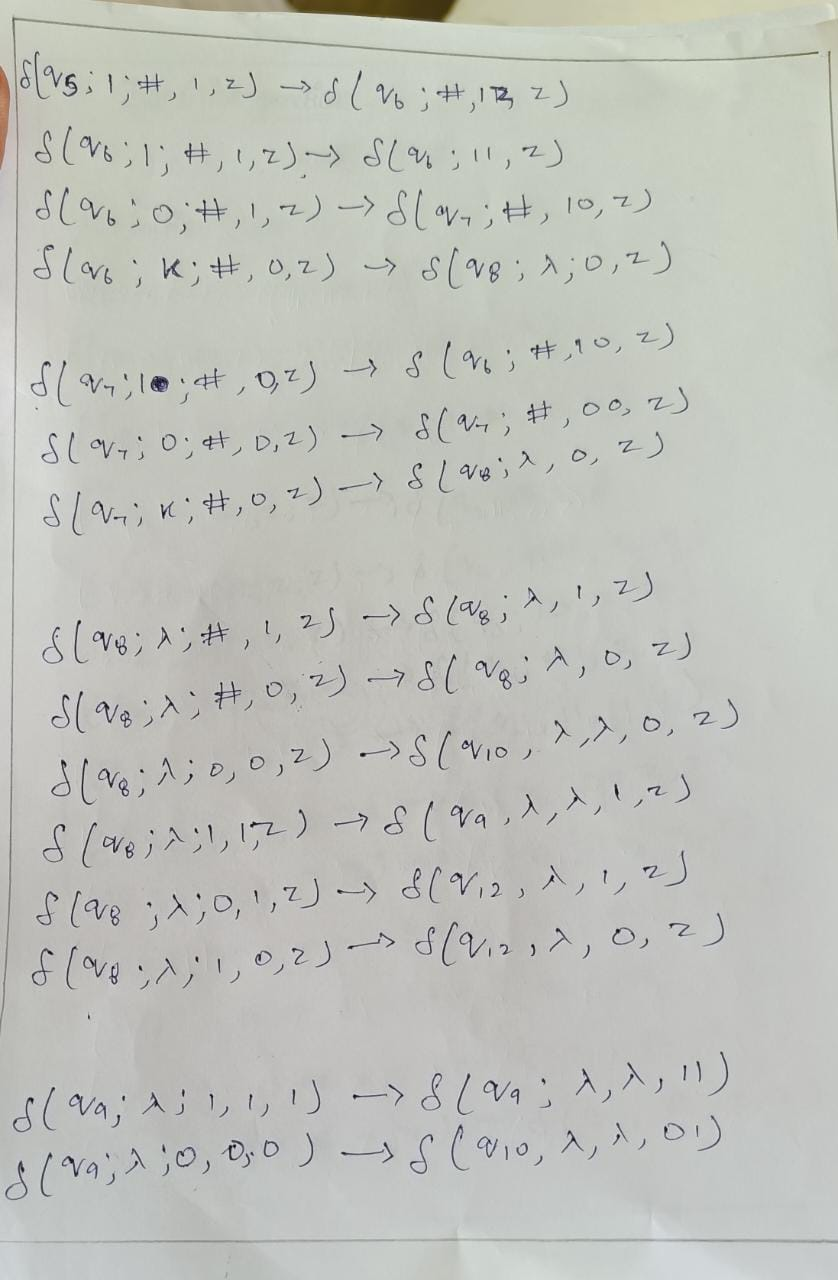 δ(q5; 1; #, 1, z) → δ(q6; #, 1, z)
δ(q6; 1; #, 1, z) → δ(q6; 11, z)
δ(q6; 0; #, 1, z) → δ(q7; #, 10, z)
δ(q6; K; #, 0, z) → δ(q8; λ; 0, z)
δ(q7; 1; #, 0, z) → δ(q6; #, 10, z)
δ(q7; 0; #, 0, z) → δ(q7; #, 00, z)
δ(q7; K; #, 0, z) → δ(q8; λ, 0, z)
δ(q8; λ; #, 1, z) → δ(q8; λ, 1, z)
δ(q8; λ; #, 0, z) → δ(q8; λ, 0, z)
δ(q8; λ; 0, 0, z) → δ(q10, λ, λ, 0, z)
δ(q8; λ; 1, 1, z) → δ(q9, λ, λ, 1, z)
δ(q8; λ; 0, 1, z) → δ(q12, λ, 1, z)
δ(q8; λ; 1, 0, z) → δ(q12, λ, 0, z)
δ(q9; λ; 1, 1, 1) → δ(q9; λ, λ, 11)
δ(q9; λ; 0, 0, 0) → δ(q10, λ, λ, 01)